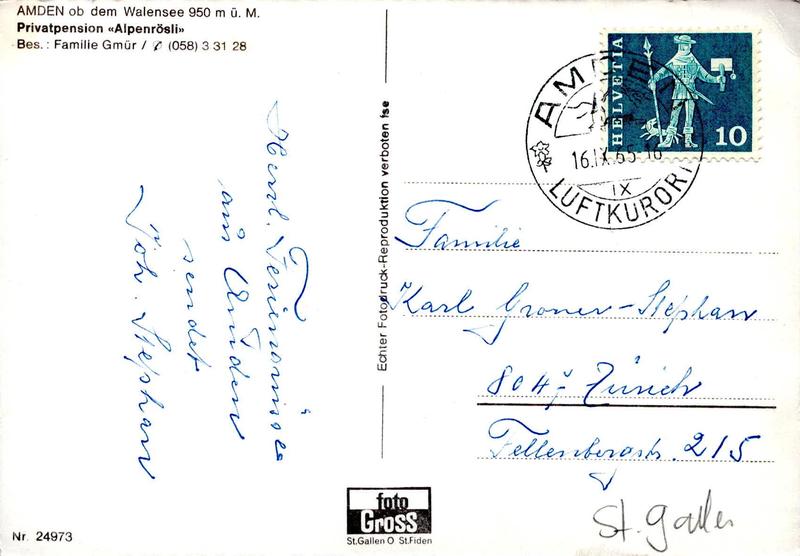 AMDEN ob dem Walensee 950 m ü. M.
Privatpension «Alpenrösli»
Bes.: Familie Gmür / ✆ (058) 3 31 28
Herzl. Feriengrüsse
aus Amden
sendet
Joh. Stephan
Echter Fotodruck-Reproduktion verboten fse
HELVETIA
10
AMDEN
16.IX.65-16
IX
LUFTKURORT
Familie
Karl Groner-Stephan
8047 Zürich
Fellenbergstr. 215
foto
Gross
St.Gallen O St.Fiden
St. Gallen
Nr. 24973